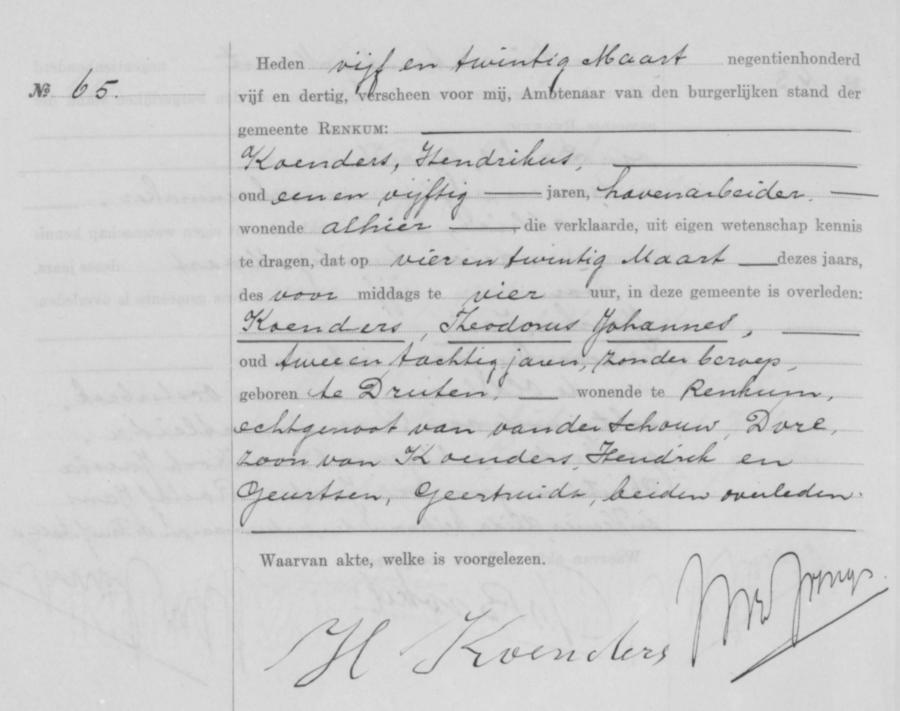 Heden vijf en twintig Maart negentienhonderd
№ 65.
vijf en dertig, verscheen voor mij, Ambtenaar van den burgerlijken stand der
gemeente RENKUM:
Koenders, Hendrikus,
oud een en vijftig jaren, havenarbeider.
wonende alhier, die verklaarde, uit eigen wetenschap kennis
te dragen, dat op vier en twintig Maart dezes jaars,
des voor middags te vier uur, in deze gemeente is overleden:
Koenders, Theodorus Johannes,
oud twee en tachtig jaren, zonder beroep,
geboren te Druten wonende te Renkum,
echtgenoot van van der Schouw, Dore,
zoon van Koenders, Hendrik en
Geurtsen, Geertruida, beiden overleden.
Waarvan akte, welke is voorgelezen.
H Koenders